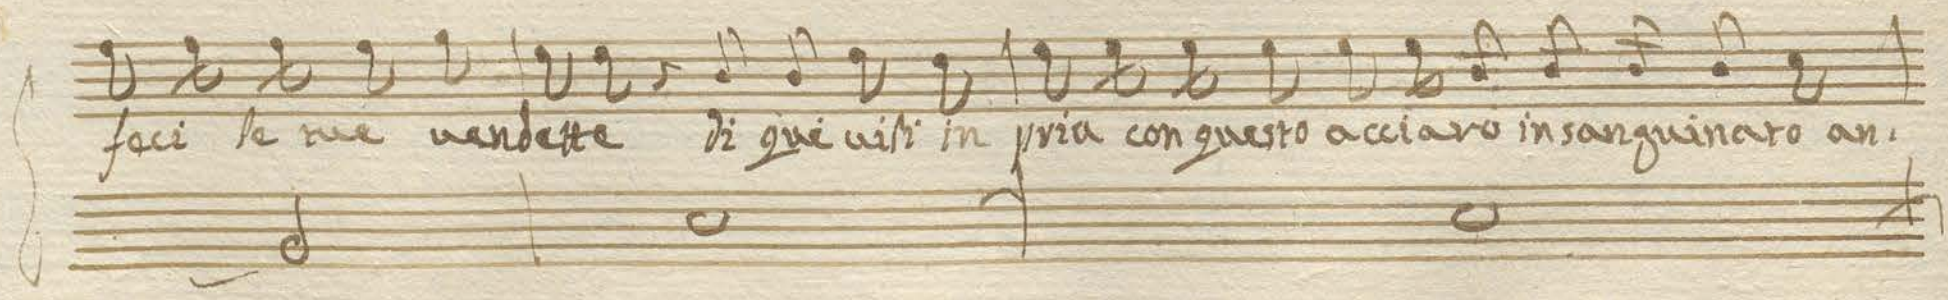 feci le tue uendette di qui uisti in pria con questo acciaro insanguinato an.